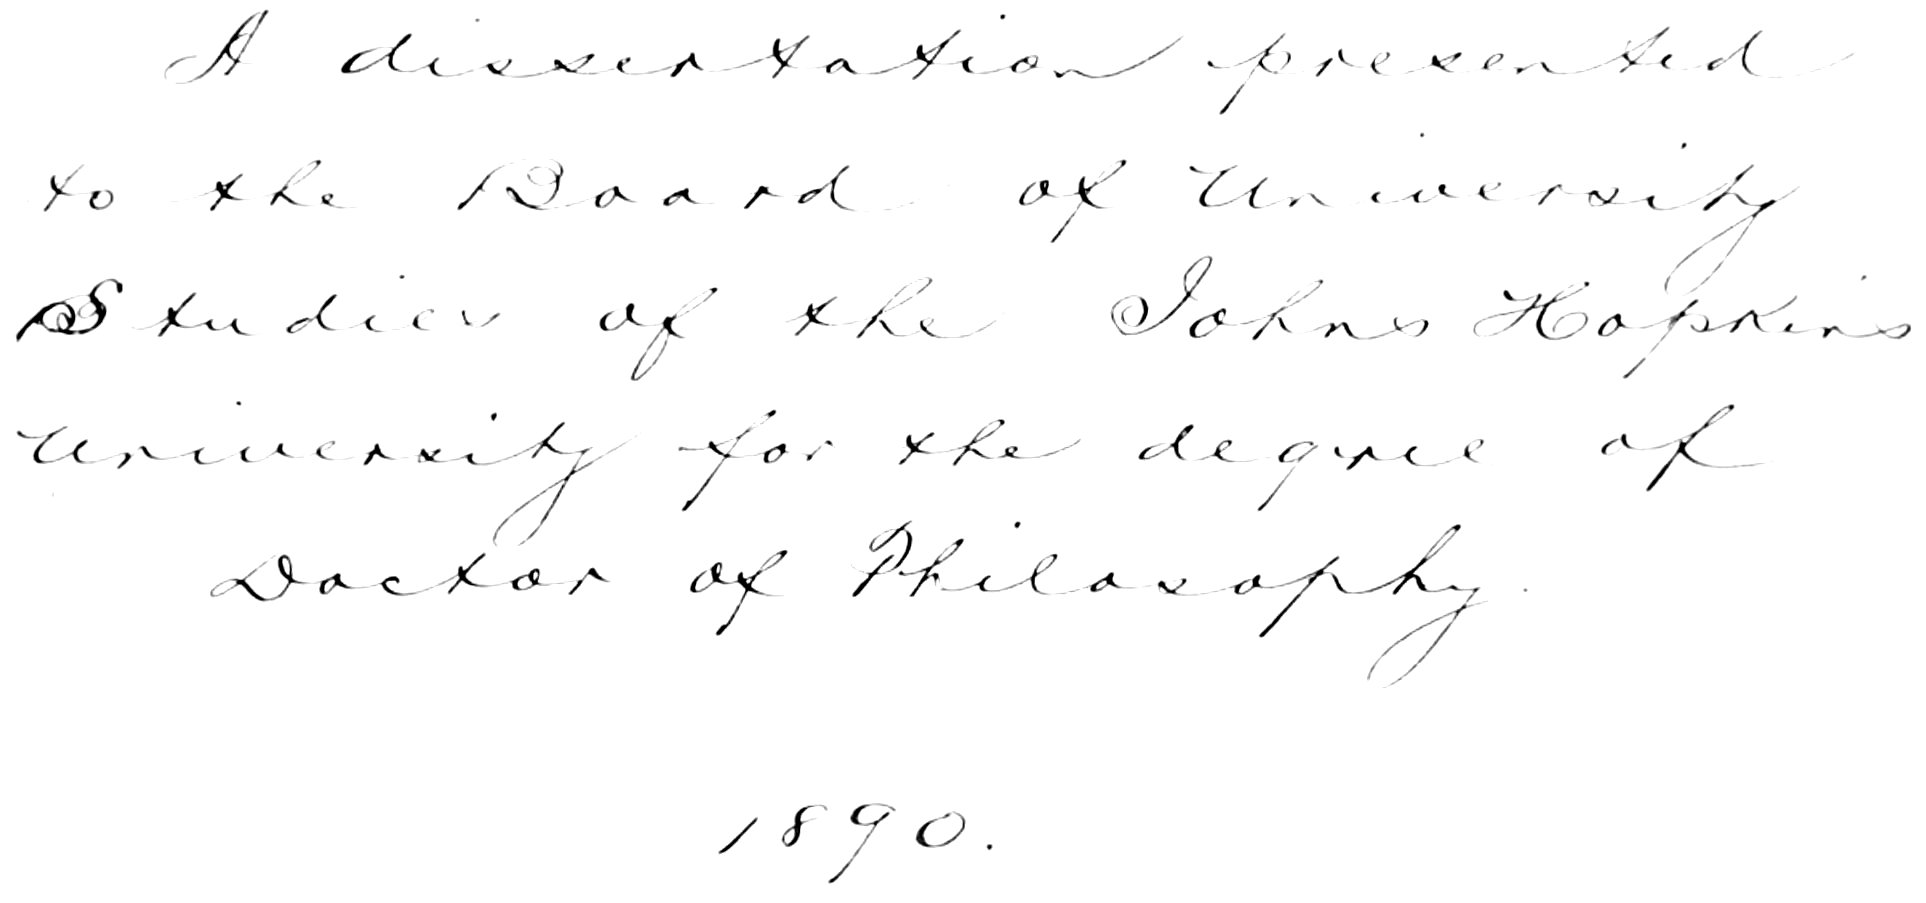 A dissertation presented
to the Board of University
Studies of the Johns Hopkins
University for the degree of
Doctor of Philosophy.
1890.